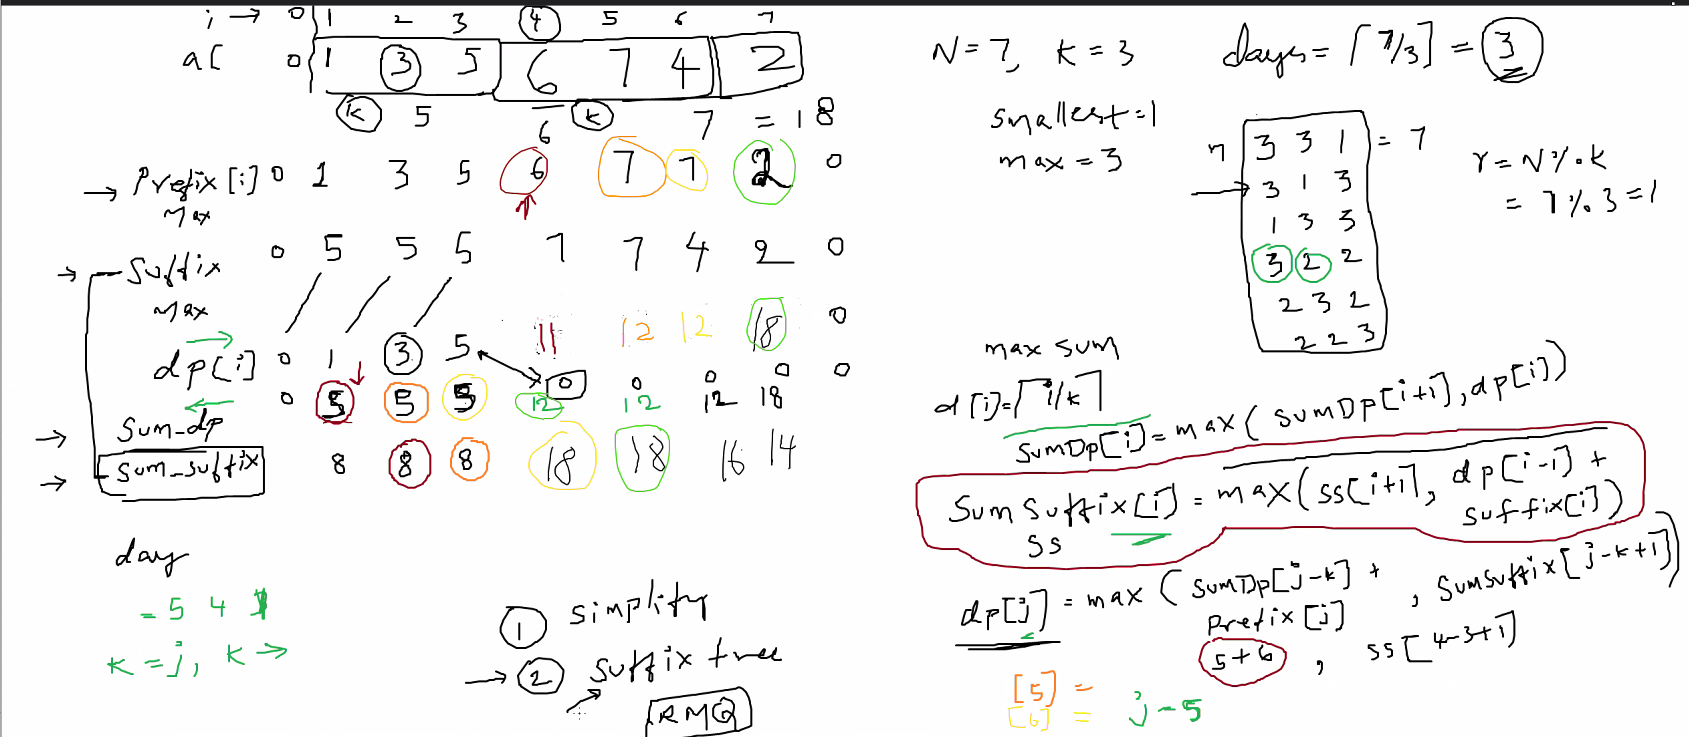 i → 0 1 2 3 4 5 6 7
a[ 0 1 3 5 6 7 4 2
k 5 6 k 7 = 18
→ Prefix[i] 0 1 3 5 6 7 7 2 0
Max
→ Suffix 0 5 5 5 7 7 4 2 0
Max
dp[i] 0 1 3 5 11 12 12 18 0
0 0 0 0 0
Sum_dp 0 5 5 5 12 12 12 18
→ Sum_suffix 8 8 8 18 18 16 14
day
= 5 4
k = j, k →
① simplify
→ ② suffix tree
RMQ
N = 7, K = 3
days = ⌈7/3⌉ = 3
smallest = 1
max = 3
7 3 3 1 = 7
3 1 3
1 3 3
3 2 2
2 3 2
2 2 3
r = N % k
= 7 % 3 = 1
max sum
d[i] = ⌈i/k⌉
sumDp[i] = max(sumDp[i+1], dp[i])
Sum Suffix[i] = max(ss[i+1], dp[i-1] +
ss suffix[i])
dp[j] = max(sumDp[j-k] + , Sumsuffix[j-k+1])
Prefix[j]
5+6 , ss[4-3+1]
[5] =
[6] = j-5